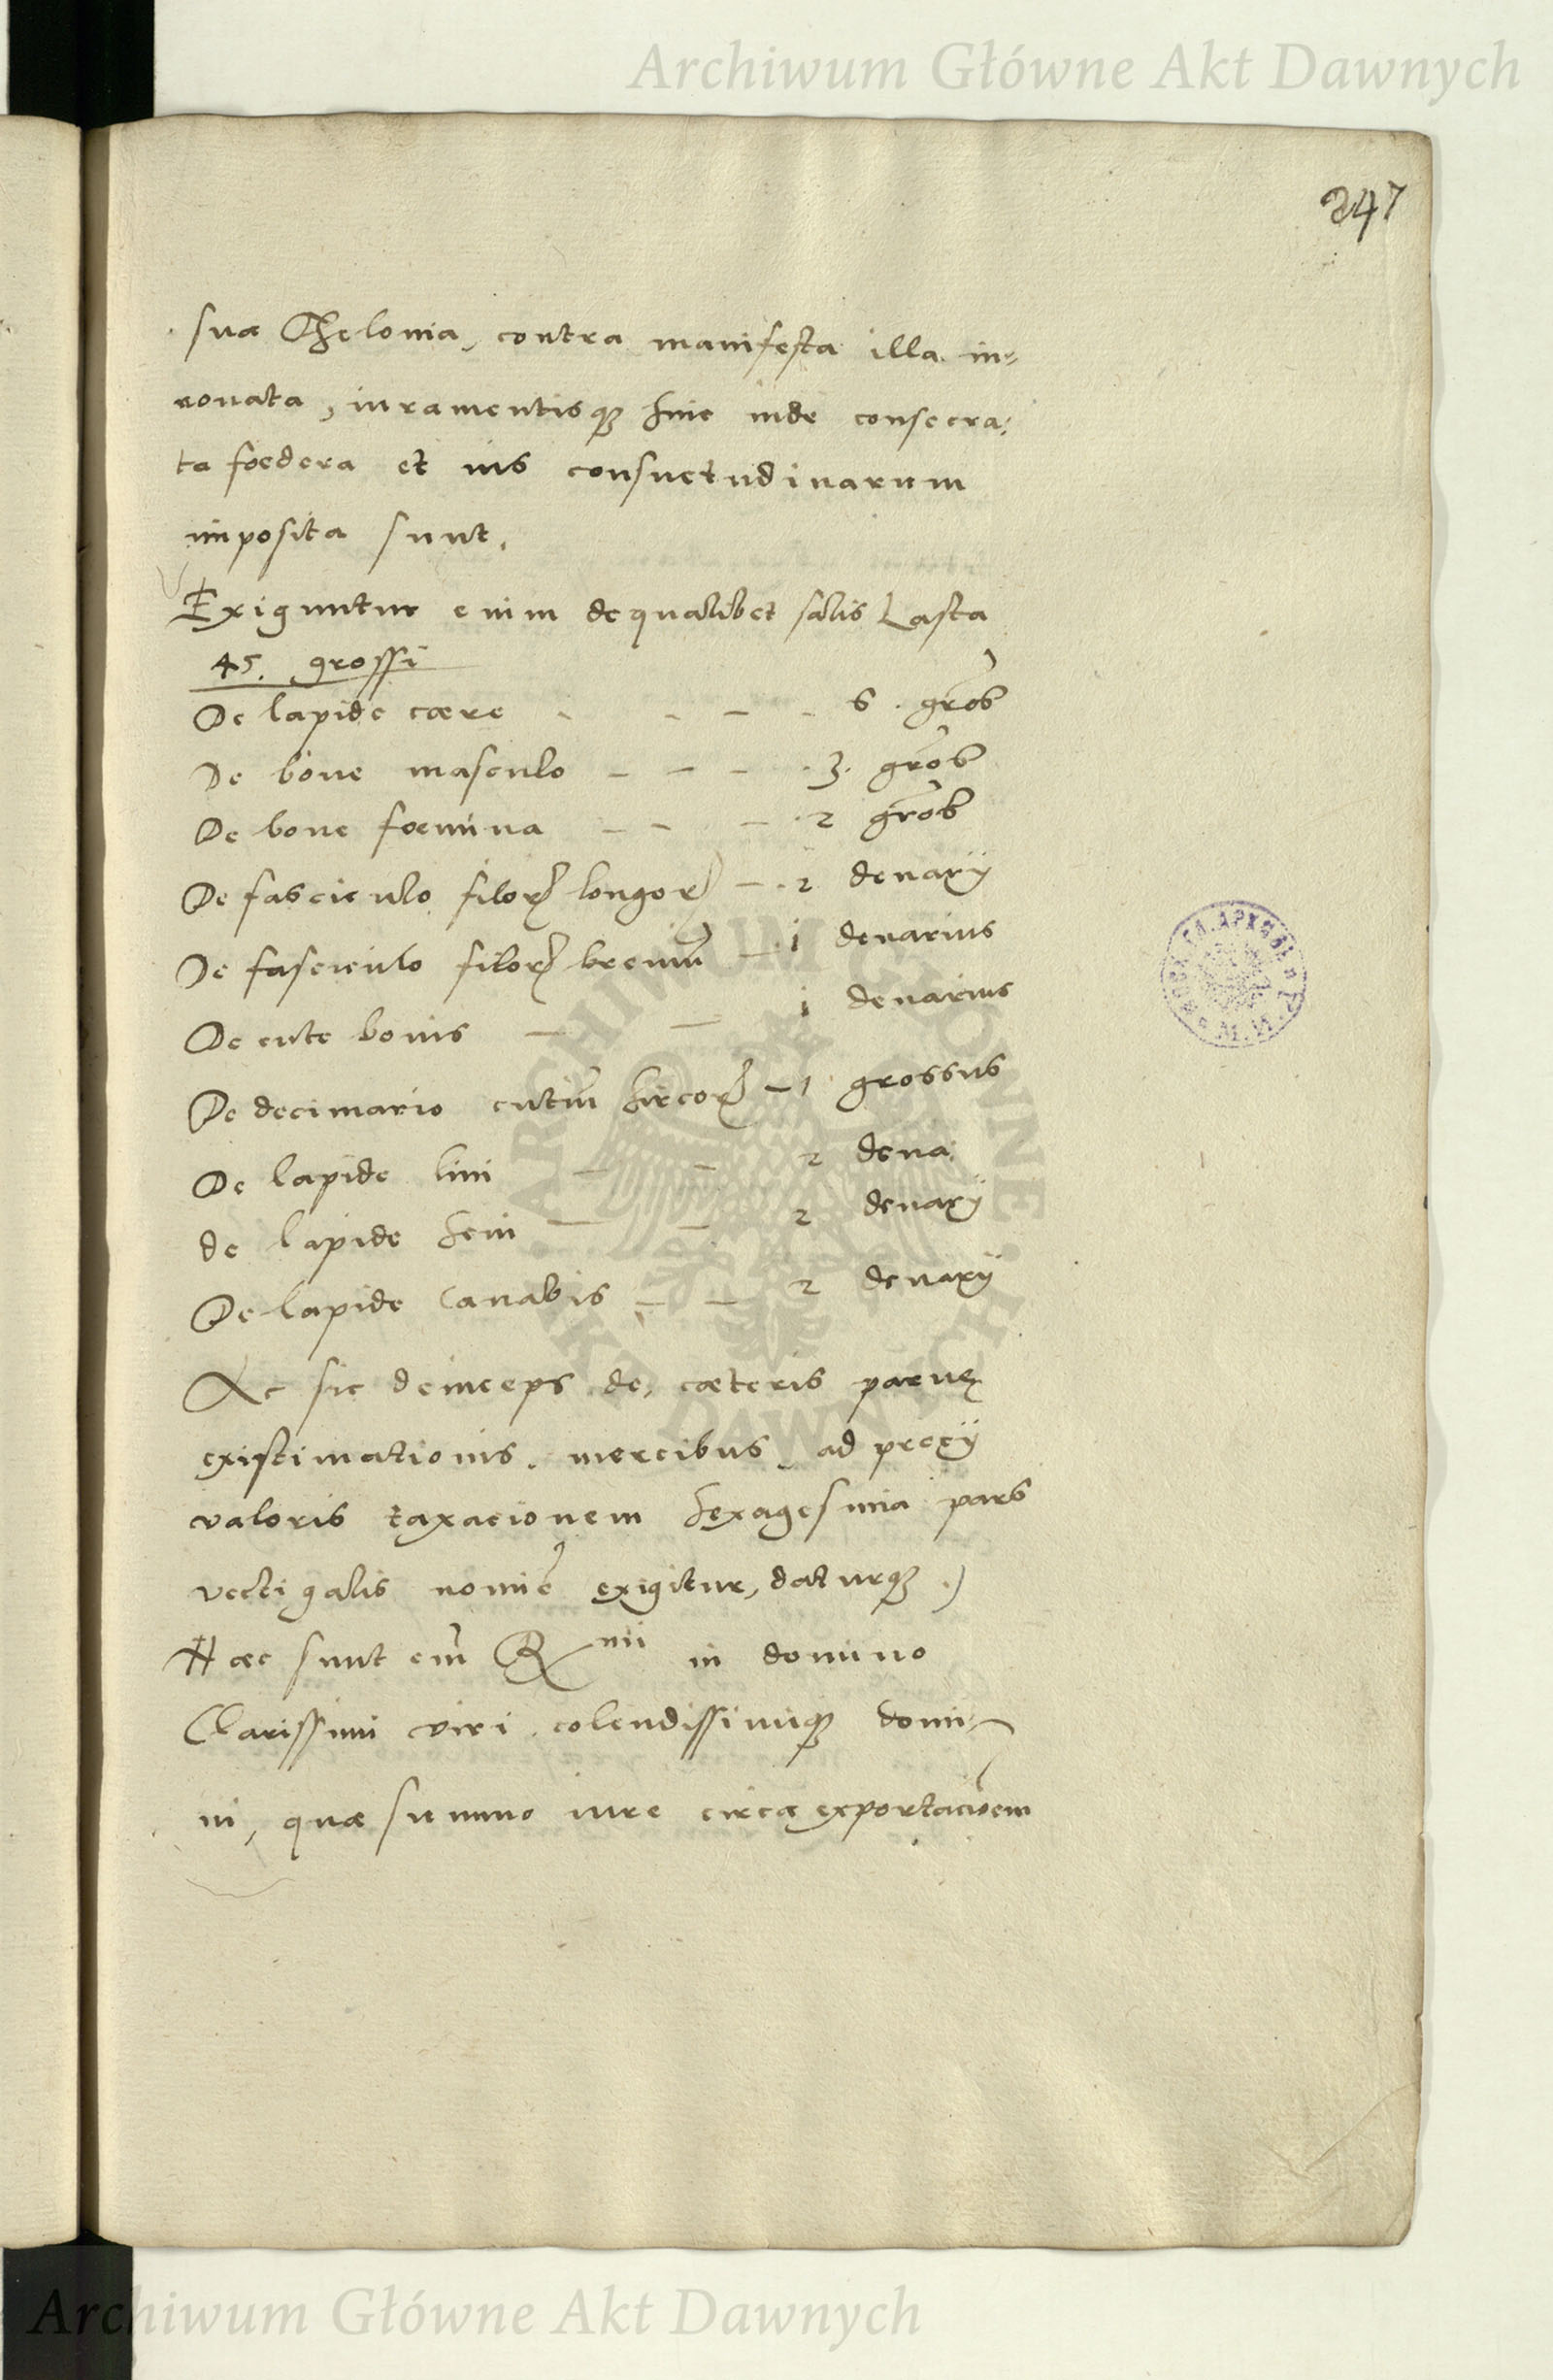 Archiwum Główne Akt Dawnych
247
sua Thelonia, contra manifesta illa in-
novata, iuramentisq3 hinc inde consecra:
ta foedera et ius consuetudinarum
imposita sunt.
Exiguntur enim de qualibet salis Lasta
45. grossi
De lapide caere - - - - 6. gros
De bove masculo - - - 3. gros
De bove foemina - - - 2 gros
De fasciculo filor longor - 2 denarij
De fasciculo filor brevium - 1 denarius
De cute bovis - - 1 denarius
De decimario cutium hircor - 1 grossus
De lapide lini - - 2 dena:
de lapide seui - - 2 denarij
De lapide Canabis - - 2 denarij
Ac sic deinceps de caeteris parvę
existimationis. mercibus ad precij
valoris taxacionem sexagesima pars
vectigalis nomine exigitur, daturq3.)
Haec sunt enim R mi in domino
Clarissimi viri colendissimiq3 domi-
ni, quae summo iure circa exportacionem
ARCHIWUM GŁÓWNE
AKT DAWNYCH
Archiwum Główne Akt Dawnych